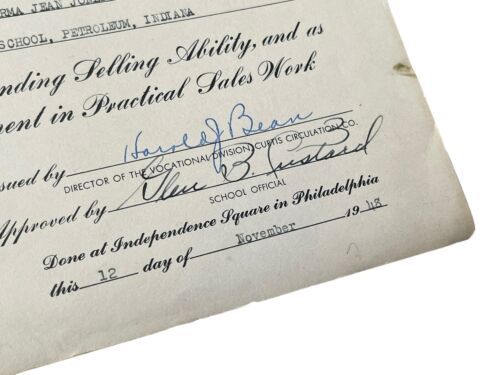 RMA JEAN
SCHOOL, PETROLEUM, INDIANA
nding Selling Ability, and as
ment in Practical Sales Work
sued by Harold J Bean
DIRECTOR OF THE VOCATIONAL DIVISION CURTIS CIRCULATION CO.
Approved by Glen B. Custard
SCHOOL OFFICIAL
Done at Independence Square in Philadelphia
this 12 day of November 1948